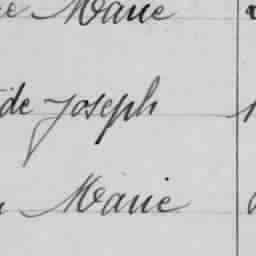 Marie
de Joseph
Marie